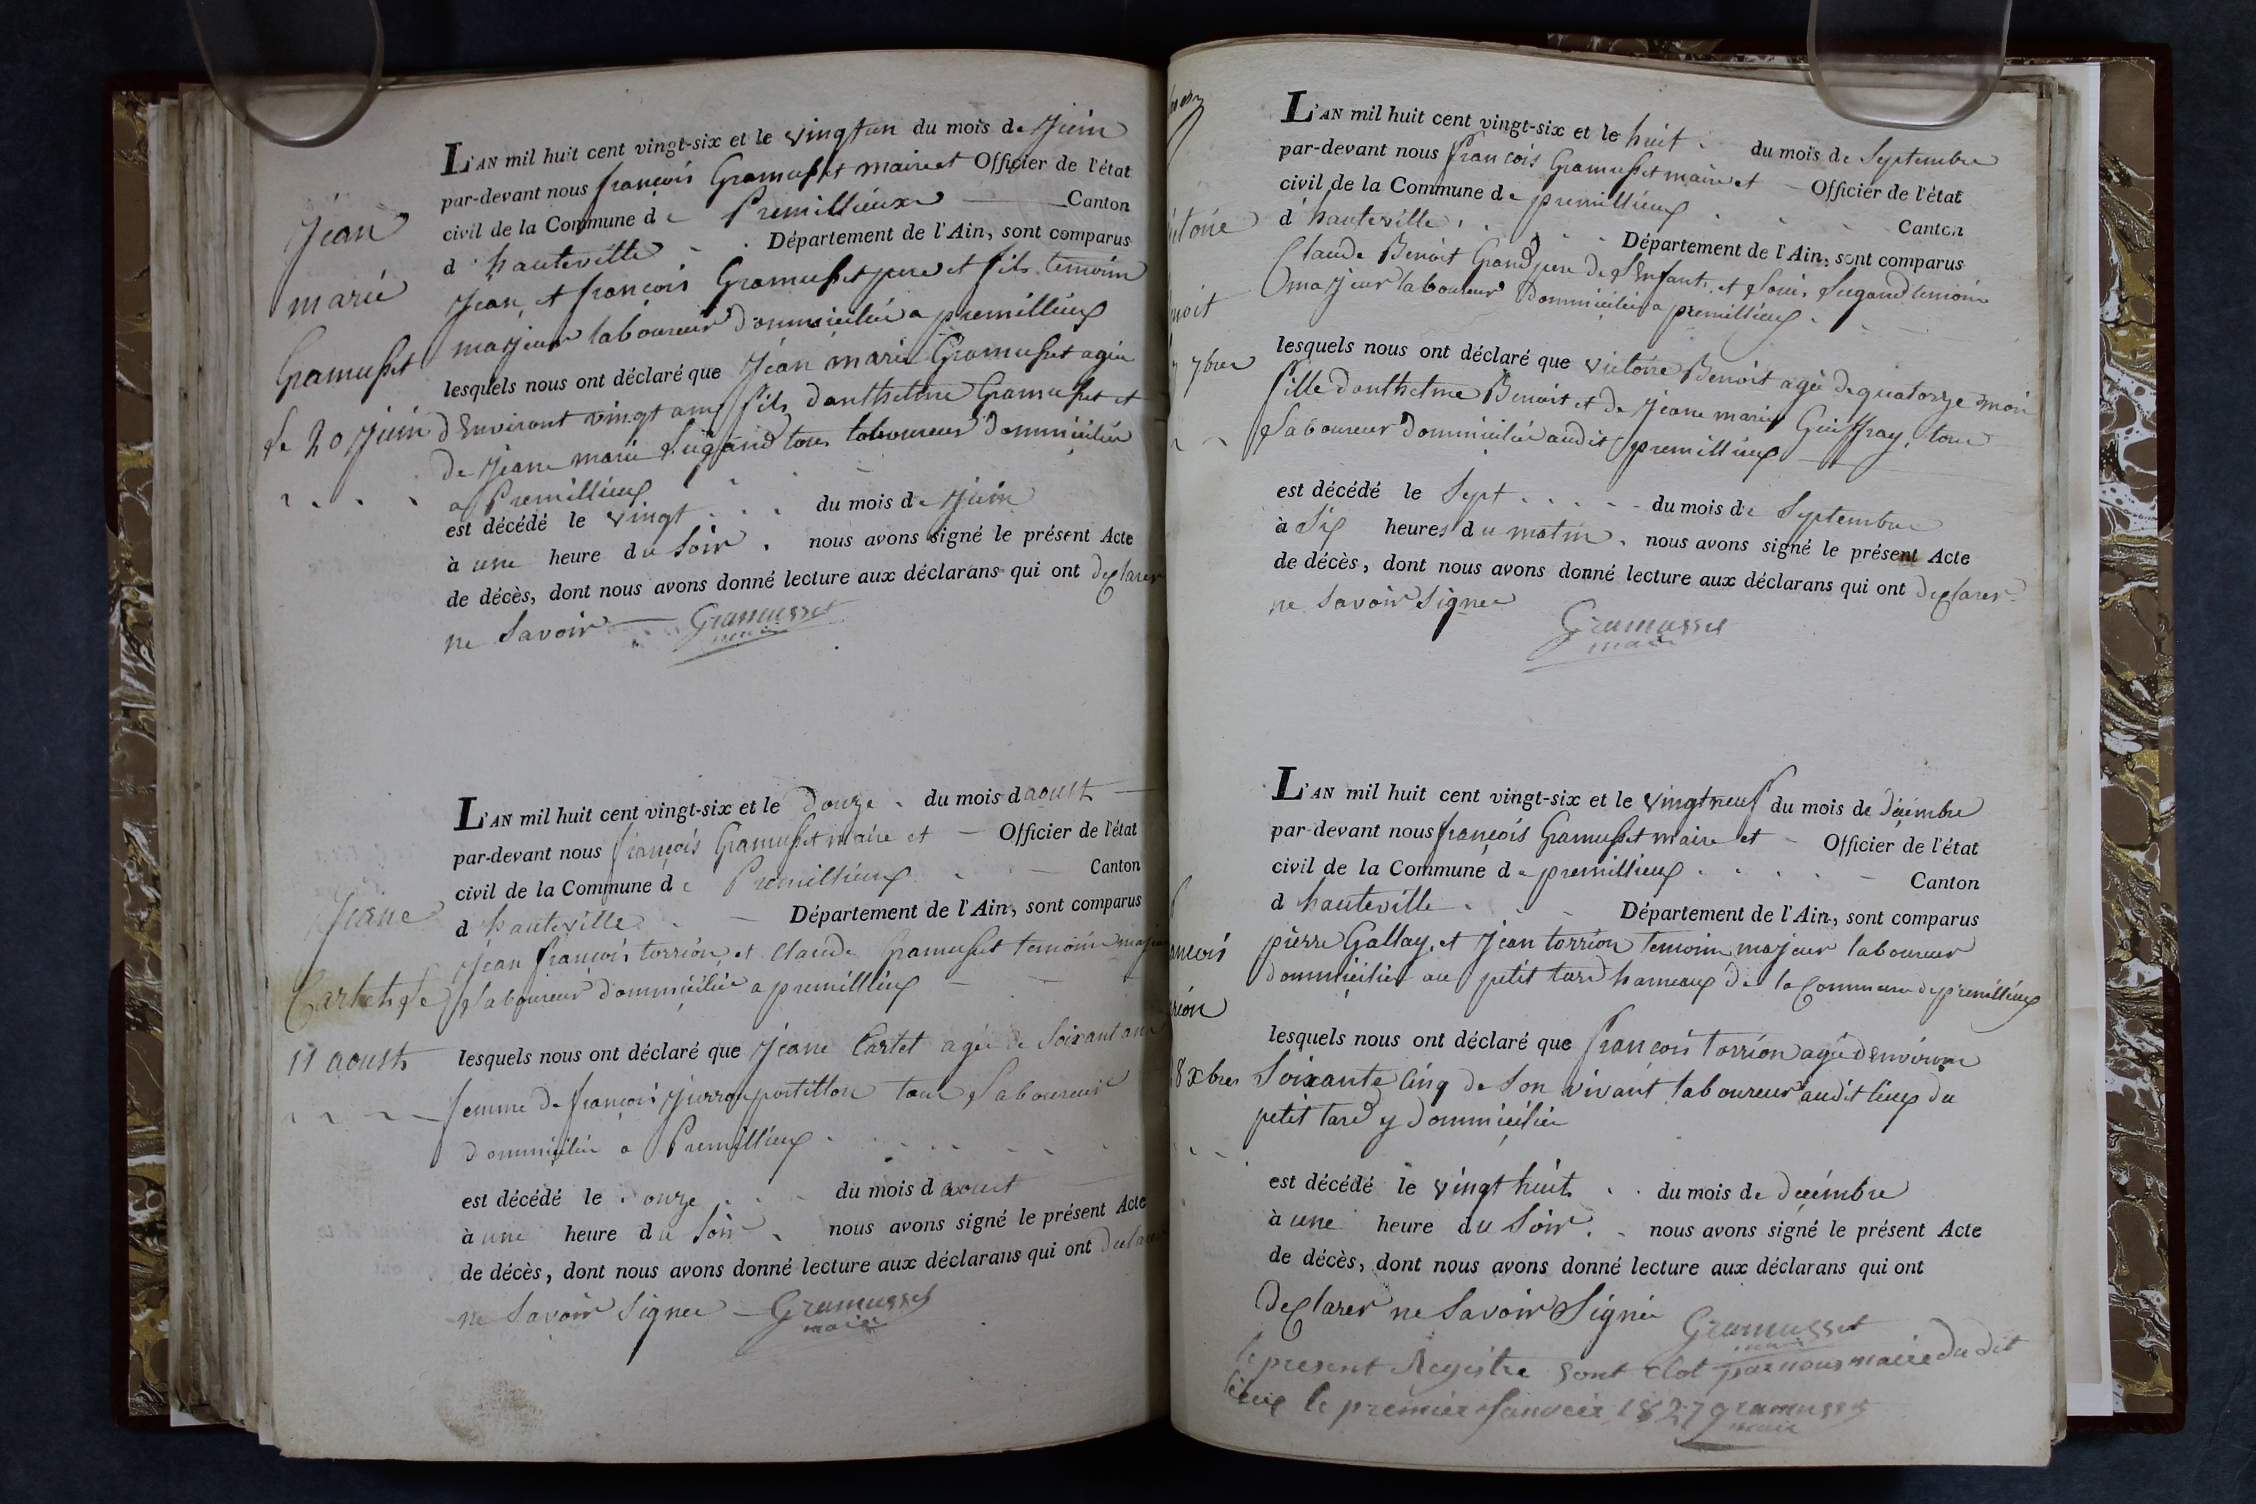 L'AN mil huit cent vingt-six et le vingt un du mois de Juin
par-devant nous françois Gramusset maire et Officier de l'état
civil de la Commune de Premillieux Canton
d'hauteville Département de l'Ain, sont comparus
Jean et françois Gramusset pere et fils temoins
majeur laboureur dommicilié a premillieux
lesquels nous ont déclaré que Jean marie Gramusset agée
d'Environt vingt ans fils d'anthelme Gramusset et
de Jeane marie Sugand tous laboureur dommicilié
a Premillieux
est décédé le vingt du mois de Juin
à une heure du soir nous avons signé le présent Acte
de décès, dont nous avons donné lecture aux déclarans qui ont declarer
ne savoir Gramusset
maire
Jean
marie
Gramusset
le 20 Juin
L'AN mil huit cent vingt-six et le douze du mois d aoust
par-devant nous françois Gramusset maire et Officier de l'état
civil de la Commune de Premillieux Canton
d hauteville Département de l'Ain, sont comparus
Jean françois torrion et Claude Gramusset temoins majeur
laboureur dommicilié a premillieux
lesquels nous ont déclaré que Jeane Cartet agée de soixant ans
femme de françois portillon tous laboureur
dommicilié a Premillieux
est décédé le onze du mois d aoust
à une heure du soir nous avons signé le présent Acte
de décès, dont nous avons donné lecture aux déclarans qui ont declarer
ne savoir signer Gramusset
maire
Jeane
Cartet le
11 aoust
L'AN mil huit cent vingt-six et le huit du mois de Septembre
par-devant nous françois Gramusset maire et Officier de l'état
civil de la Commune de premillieux Canton
d'hauteville Département de l'Ain, sont comparus
Claude Benoit Grand pere de l'Enfant et Louis Sugand temoin
majeur laboureur dommicilié a premillieux
lesquels nous ont déclaré que victoire Benoit agée de quatorze mois
fille d'anthelme Benoit et de Jeane marie Guiffray, tous
laboureur dommicilié audit premillieux
est décédé le Sept du mois de Septembre
à Six heures du matin nous avons signé le présent Acte
de décès, dont nous avons donné lecture aux déclarans qui ont declarer
ne savoir signer
Gramusset
maire
7bre
L'AN mil huit cent vingt-six et le vingt neuf du mois de décembre
par-devant nous françois Gramusset maire et Officier de l'état
civil de la Commune de premillieux Canton
d hauteville Département de l'Ain, sont comparus
pierre Gallay, et Jean torrion temoin majeur laboureur
dommicilié au petit tard hameaux de la Commune de premillieux
lesquels nous ont déclaré que françois torrion agé d'Environ
Soixante cinq de son vivant laboureur audit lieux du
petit tard y dommicilié
est décédé le vingt huit du mois de décembre
à une heure du soir nous avons signé le présent Acte
de décès, dont nous avons donné lecture aux déclarans qui ont
declarer ne savoir signer
Gramusset
maire
le present Registre sont clot par nous maire du dit
lieux le premier Janvier 1827 gramusset
maire